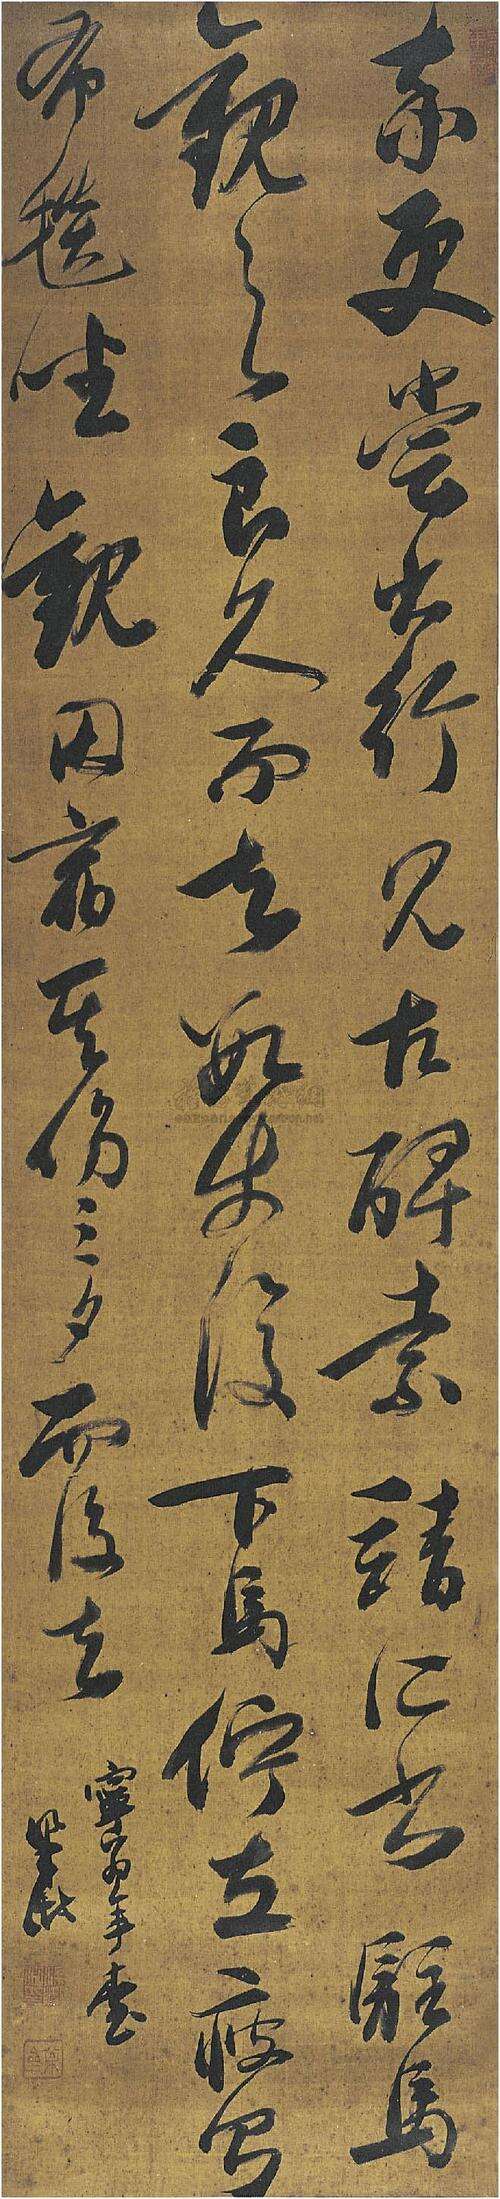 率更嘗出行見古碑索靖所書駐馬
觀之良久而去數步復下馬佇立疲則
布毯坐觀因宿其傍三夕而後去
寧翁年臺